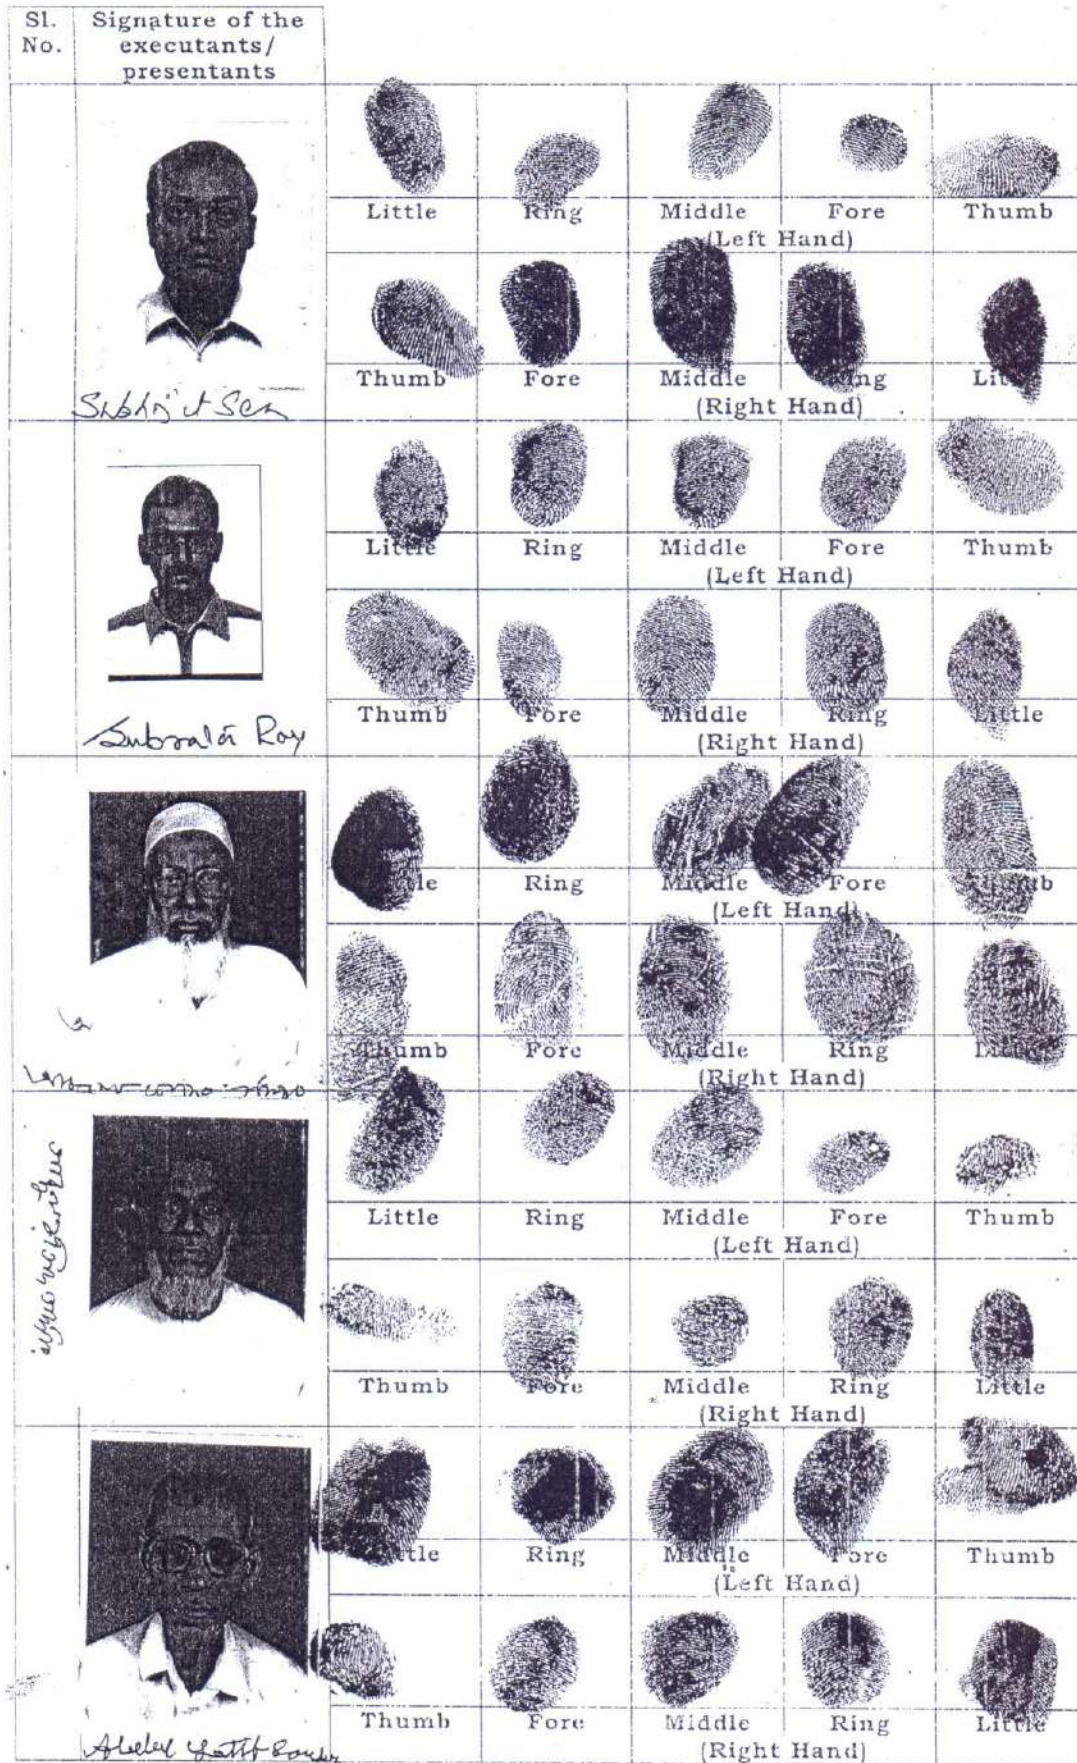 Sl. No.
Signature of the executants/ presentants
Little Ring Middle Fore Thumb
(Left Hand)
Thumb Fore Middle Ring Little
(Right Hand)
Subhijit Sen
Little Ring Middle Fore Thumb
(Left Hand)
Thumb Fore Middle Ring Little
(Right Hand)
Subrata Roy
Little Ring Middle Fore Thumb
(Left Hand)
Thumb Fore Middle Ring Little
(Right Hand)
Little Ring Middle Fore Thumb
(Left Hand)
Thumb Fore Middle Ring Little
(Right Hand)
Little Ring Middle Fore Thumb
(Left Hand)
Thumb Fore Middle Ring Little
(Right Hand)